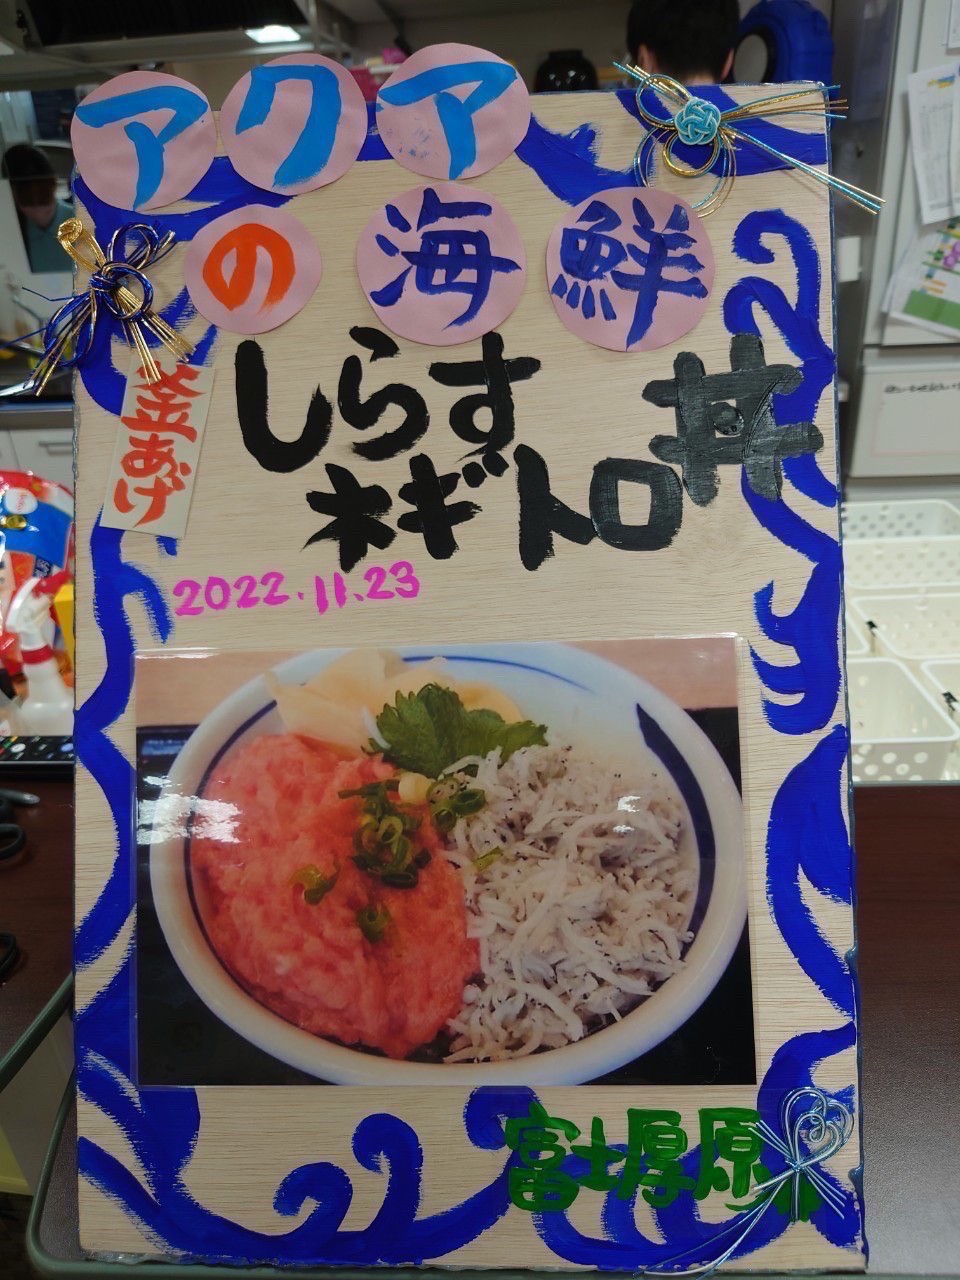 アクア
の海鮮
釜あげ
しらす
ネギトロ丼
2022.11.23
富士厚原